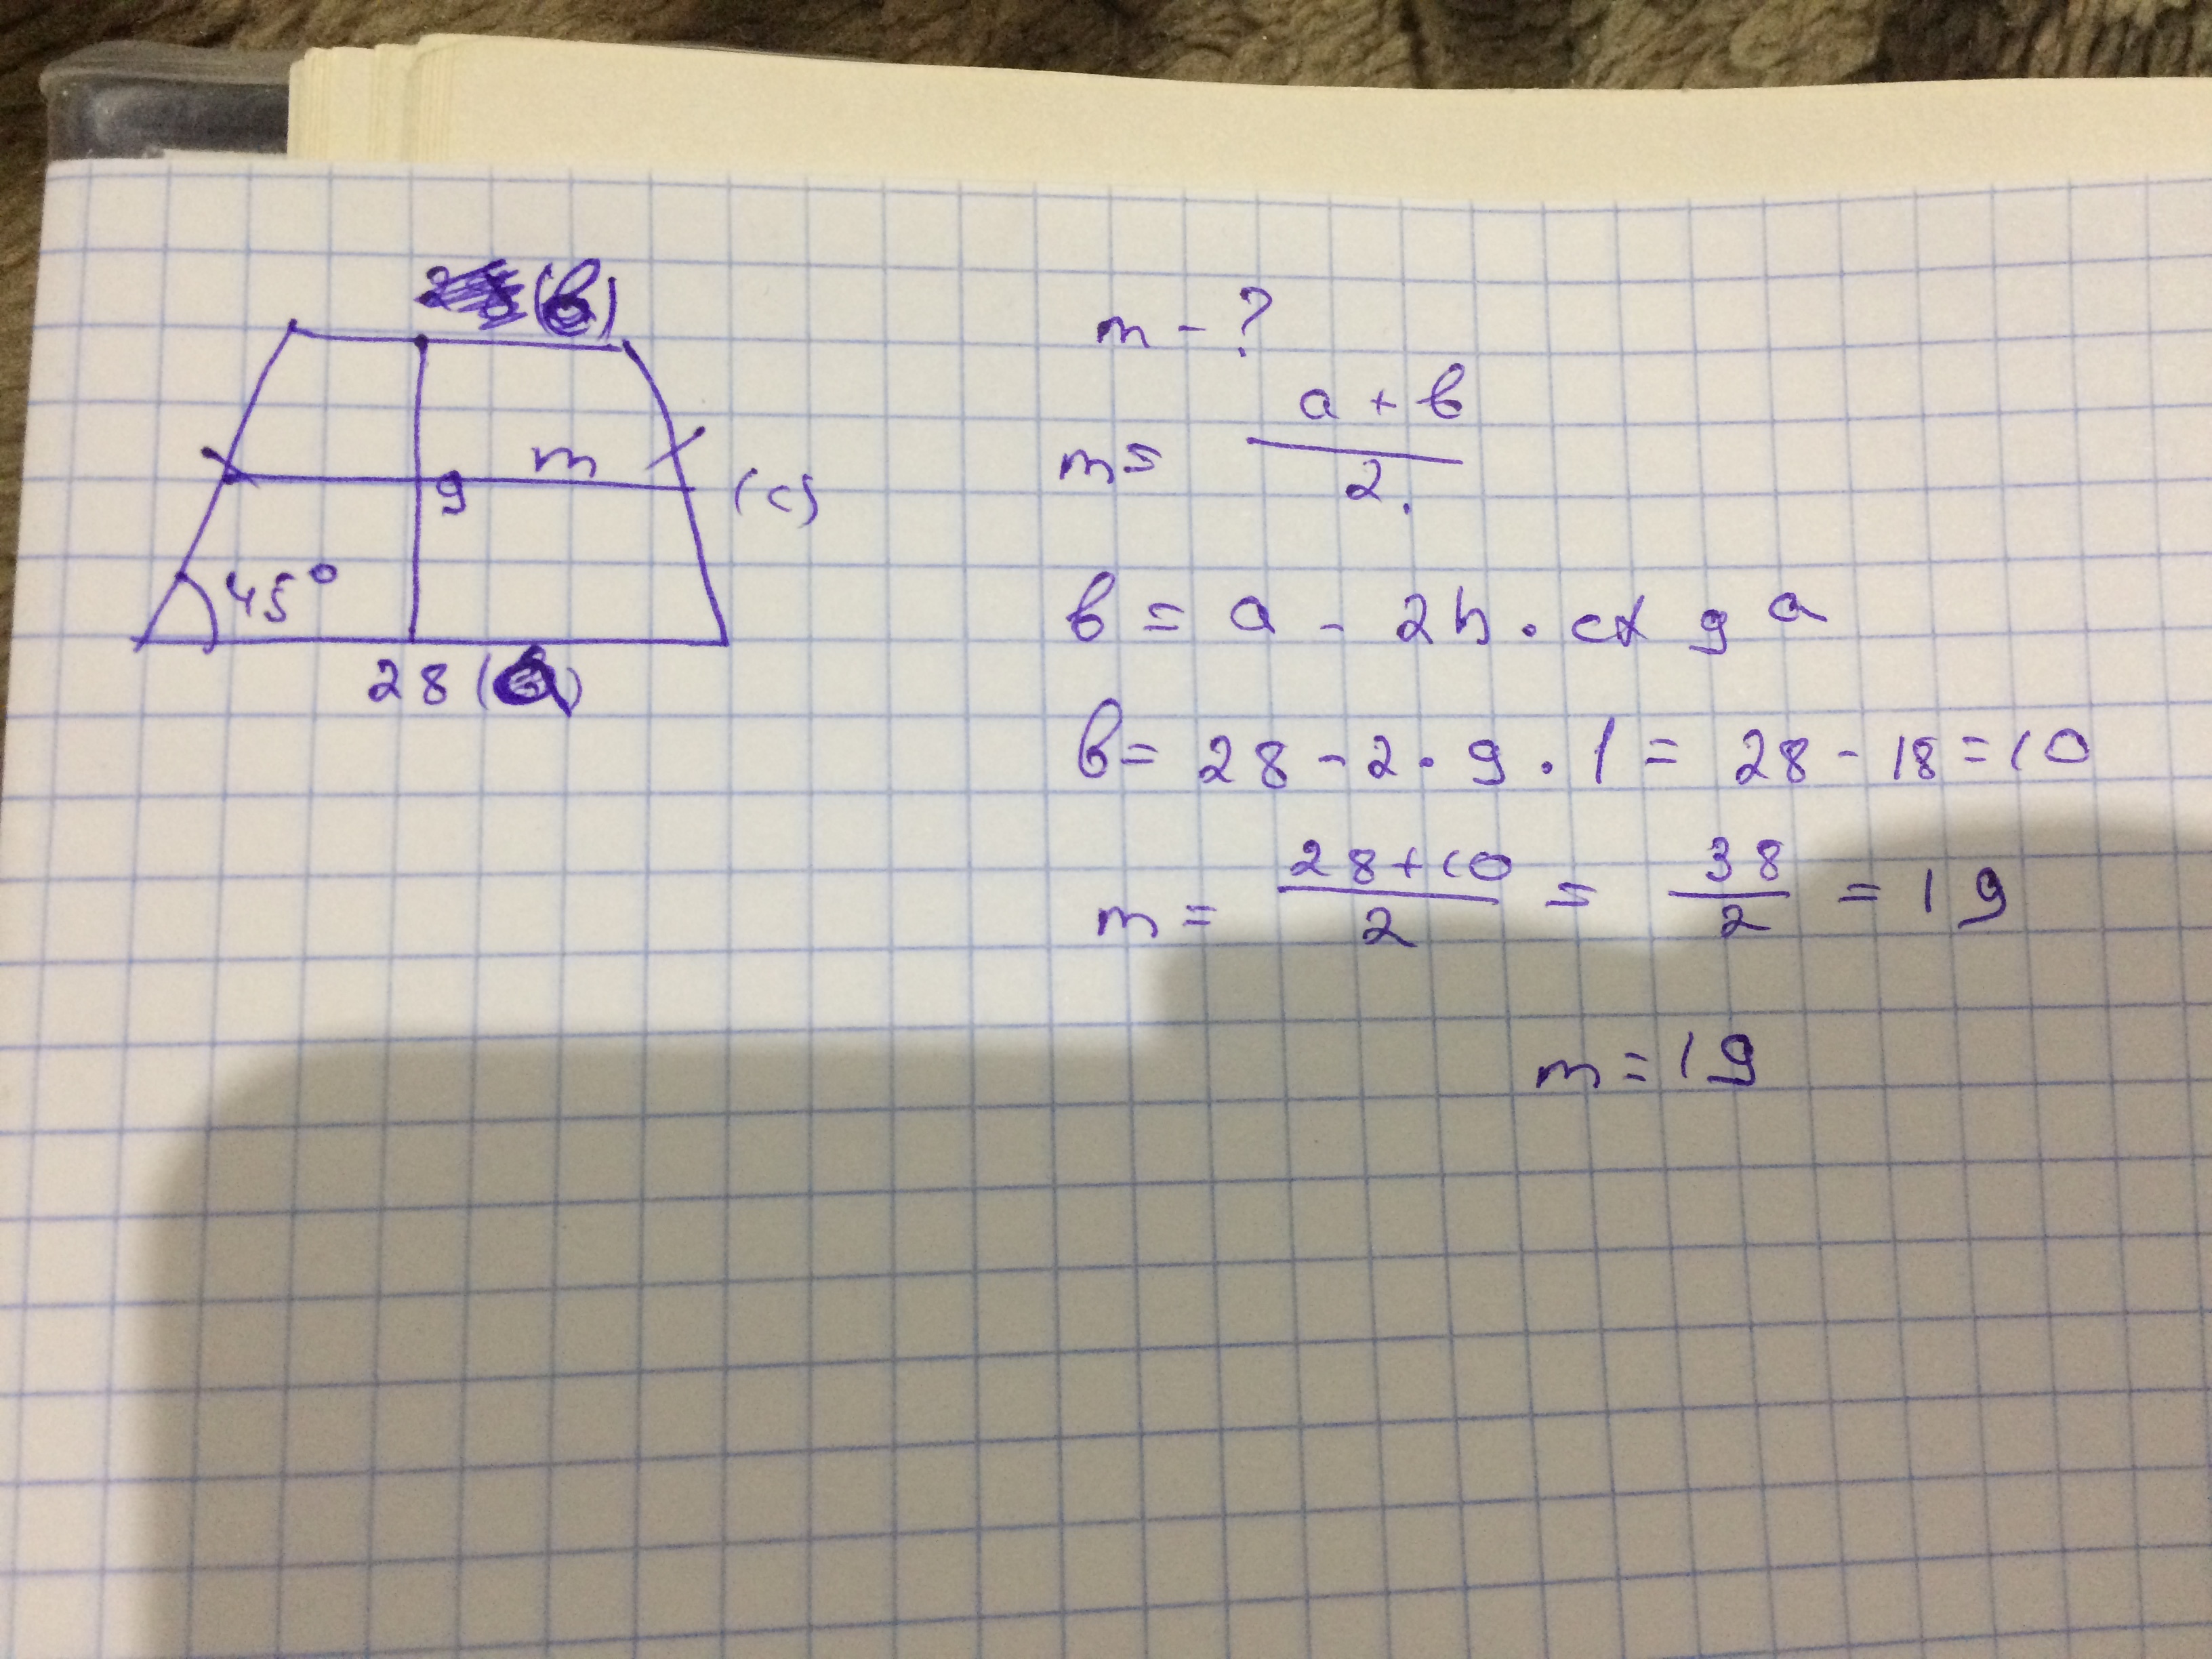 (в)
m
9
(c)
45°
28 (a)
m - ?
m = a + в / 2.
в = a - 2h · ctg a
в = 28 - 2 · 9 · 1 = 28 - 18 = 10
m = 28+10 / 2 = 38 / 2 = 19
m = 19